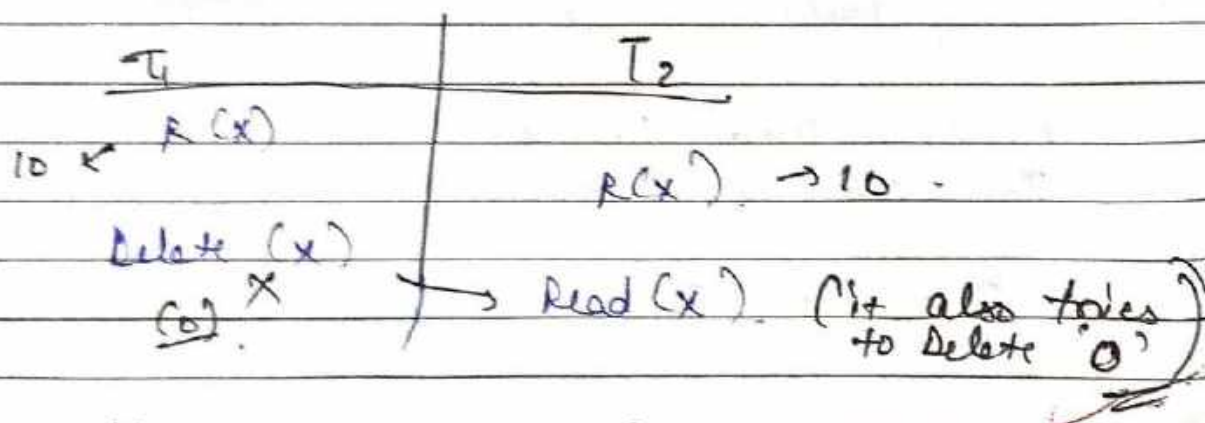 T1 T2
R(x)
10 ← R(x) → 10 .
Delete (x)
(0) X → Read (x). (it also tries
to Delete '0')